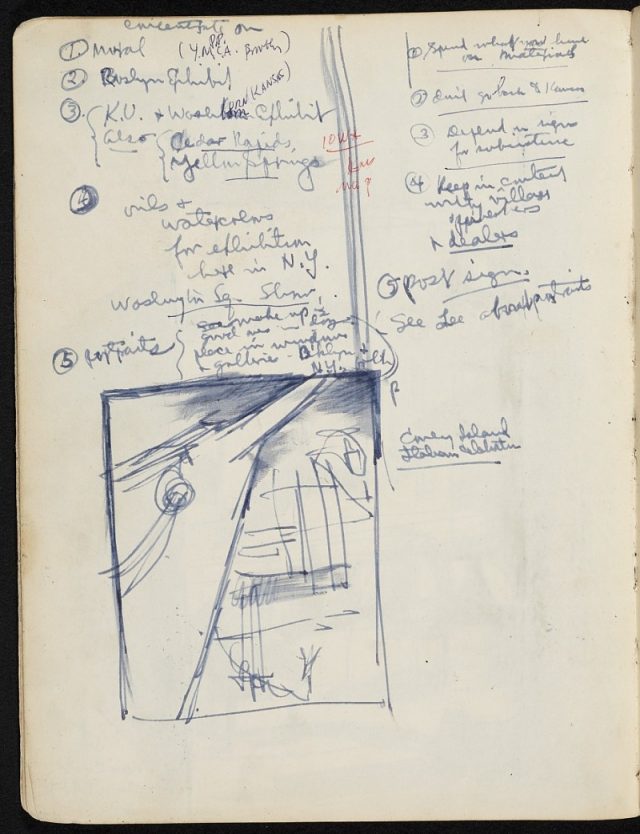 concentrate on
① mural (Y.M.C.A. Booth)
② Roslyn Exhibit
③ K.U. + Washburn Exhibit
(ON KANSAS)
also Cedar Rapids,
Yellow Springs
IOWA
④ oils +
watercolors
for exhibition
here in N.Y.
Washington Sq. Show
⑤ portraits
place in window
+ galleries - Bklyn +
N.Y.
① Spend what you have
on materials
② Don't go back to Kansas
③ Depend on signs
for subsistence
④ Keep in contact
with
+ dealers
⑤ post sign.
- See Lee about portraits
Coney Island
Italian